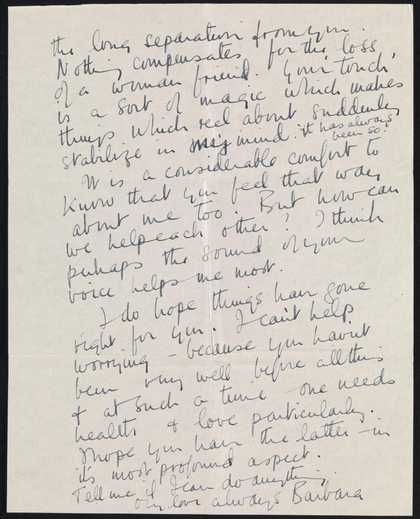 the long separation from you.
Nothing compensates for the loss
of a woman friend. Your 'touch'
is a sort of magic which makes
things which reel about suddenly
stabilize in my mind. it has always
been so.
It is a considerable comfort to
know that you feel that way
about me too. But how can
we help each other? I think
perhaps the sound of your
voice helps me most.
I do hope things have gone
right for you. I can't help
worrying – because you havn't
been very well before all this
& at such a time one needs
health & love particularly.
I hope you have the latter – in
it's most profound aspect.
Tell me if I can do anything,
my love always Barbara